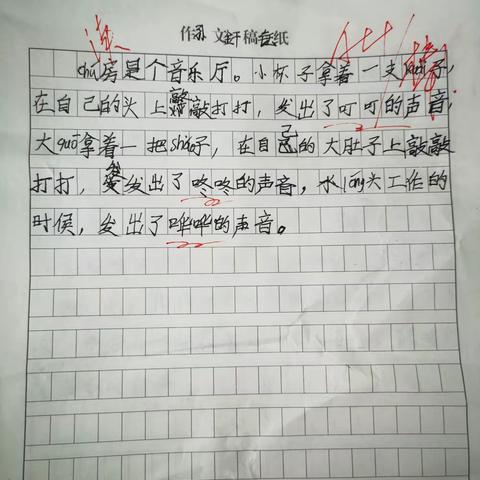 作文稿纸
chú房是个音乐厅。小杯子拿着一支kuài子,
在自己的头上敲敲打打,发出了叮叮的声音,
大guō拿着一把sháo子,在自己的大肚子上敲敲
打打,发出了咚咚的声音,水lóng头工作的
时候,发出了哗哗的声音。